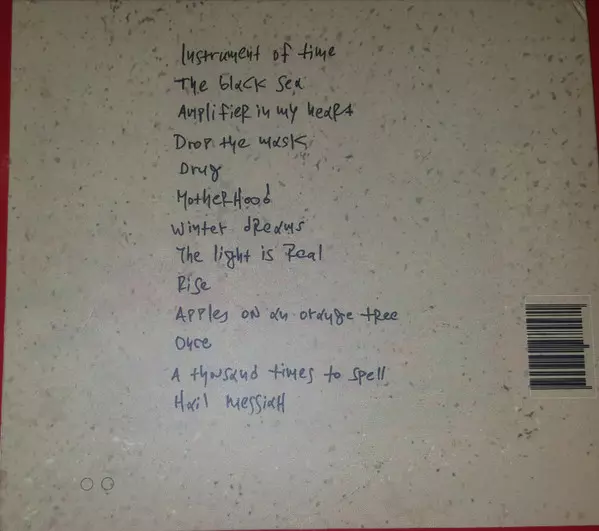 Instrument of time
The black sea
Amplifier in my heart
Drop the mask
Drug
Motherhood
Winter dreams
The light is Real
Rise
Apples on an orange tree
Once
A thousand times to spell
Hail Messiah